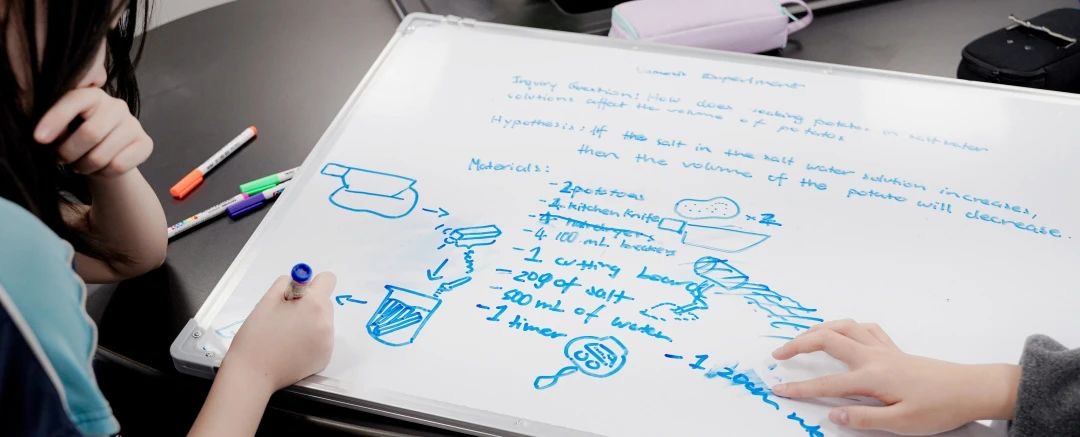 Experiment
Inquiry Question: How does soaking potatoes in saltwater
solutions affect the volume of potatoes
Hypothesis: If the salt in the salt water solution increases,
then the volume of the potato will decrease.
Materials:
- 2 potatoes
- 1 kitchen knife
× 2
- 4 100 mL beakers
- 1 cutting board
- 20g of salt
- 500 mL of water
- 1 timer
- 1